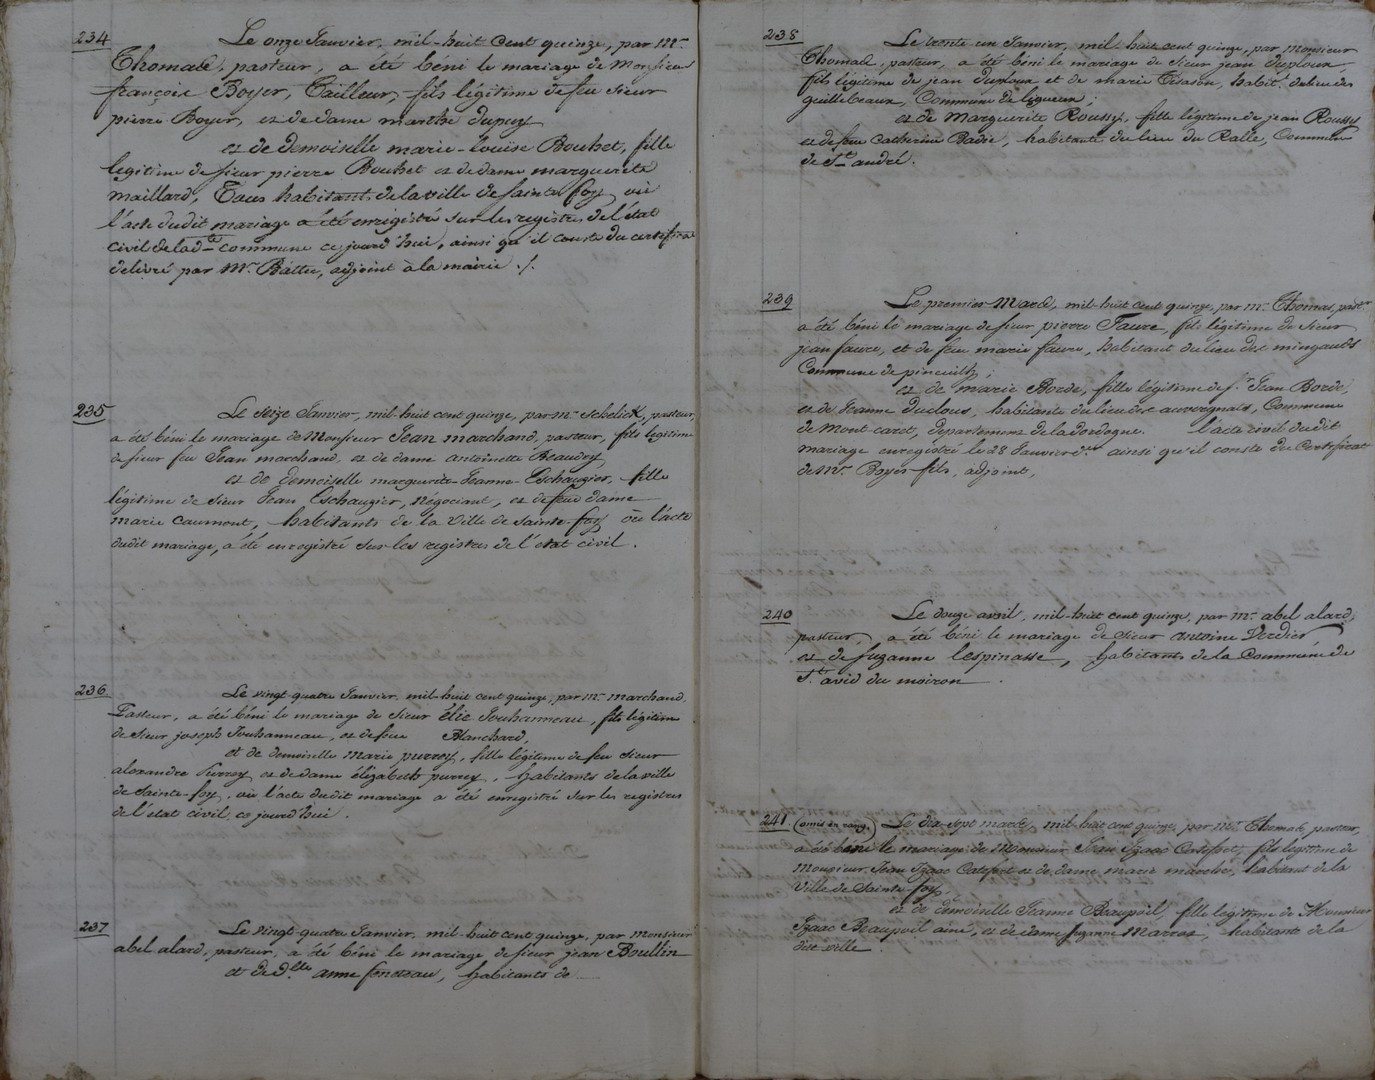 234
Le onze Janvier, mil-huit cent quinze, par Mr.
Thomas, pasteur, a été béni le mariage de Monsieur
françois Boyer, Tailleur, fils légitime de feu sieur
pierre Boyer, et de dame marthe dupuy
et de demoiselle marie-Louïse Bouhet, fille
légitime de sieur pierre Bouhet et de dame marguerite
maillard, Tous habitants de la ville de sainte foy, où
l'acte dudit mariage a été enrégistré sur les registres de l'état
civil de la dte commune ce jourd'hui, ainsi qu'il conste du certificat
délivré par Mr. Battu, adjoint à la mairie ./.
235
Le seize Janvier, mil-huit cent quinze, par mr. schelick, pasteur,
a été béni le mariage de Monsieur Jean marchand, pasteur, fils légitime
de sieur feu Jean marchand, et de dame antoinette Beaudry
et de demoiselle marguerite-Jeanne-Eschauzier, fille
légitime de sieur Jean Eschauzier, Négociant, et de feue dame
marie Caumont, habitants de la ville de Sainte-foy où l'acte
dudit mariage, a été enregistré sur les registres de l'état civil.
236
Le vingt quatre Janvier, mil-huit cent quinze, par mr. marchand,
Pasteur, a été béni le mariage de sieur élie Jouhanneau, fils légitime
de sieur joseph Jouhanneau, et de feue Blanchard,
et de demoiselle Marie purrey, fille légitime de feu sieur
alexandre Purrey et de dame élizabeth purrey, habitants de la ville
de Sainte-foy, où l'acte dudit mariage a été enregistré sur les registres
de l'état civil, ce jourd'hui.
237
Le vingt-quatre Janvier, mil-huit cent quinze, par monsieur
abel alard, pasteur, a été béni le mariage de sieur jean Boullin
et de Dlle anne feneteau, habitants de
238
Le trente un Janvier, mil-huit cent quinze, par monsieur
Thomas, pasteur, a été béni le mariage de sieur jean duploux
fils légitime de jean et de marie habitt. du lieu des
guillebeaux, Commune de ligueux;
et de Marguerite Roussy, fille légitime de jean Roussy
et de feue Catherine Badie, habitante du lieu du Ralle, Commune
de St. andré.
239
Le premier Mars, mil-huit cent quinze, par mr. Thomas, pastr
a été béni le mariage de sieur pierre Faure, fils légitime de sieur
jean faure, et de feue marie faure, habitant du lieu des mingauts
Commune de pineuilh;
et de marie Borde, fille légitime de sr. Jean Borde,
et de Jeanne Duclous, habitante du lieu des auvergnats, Commune
de Mont-caret, département de la dordogne. l'acte civil dudit
mariage enregistré le 28 Janvier dr ainsi qu'il conste du Certificat
de Mr. Boyer fils, adjoint,
240
Le douze avril, mil-huit cent quinze, par mr. abel alard,
pasteur, a été béni le mariage de sieur antoine Verdier
et de suzanne lespinasse, habitants de la Commune de
St. avid du moiron.
241
(omis en rang.) Le dix-sept mars, mil-huit cent quinze, par mr. Thomas, pasteur,
a été béni le mariage de Monsieur Jean Izaac Catefret, fils légitime de
Monsieur Jean Izaac Catefret et de dame marie habitant de la
ville de Sainte-foy,
et de demoiselle Jeanne Beaupoil, fille légitime de Monsieur
Izaac Beaupoil ainé, et de dame suzanne Marras, habitant de la
dite ville.